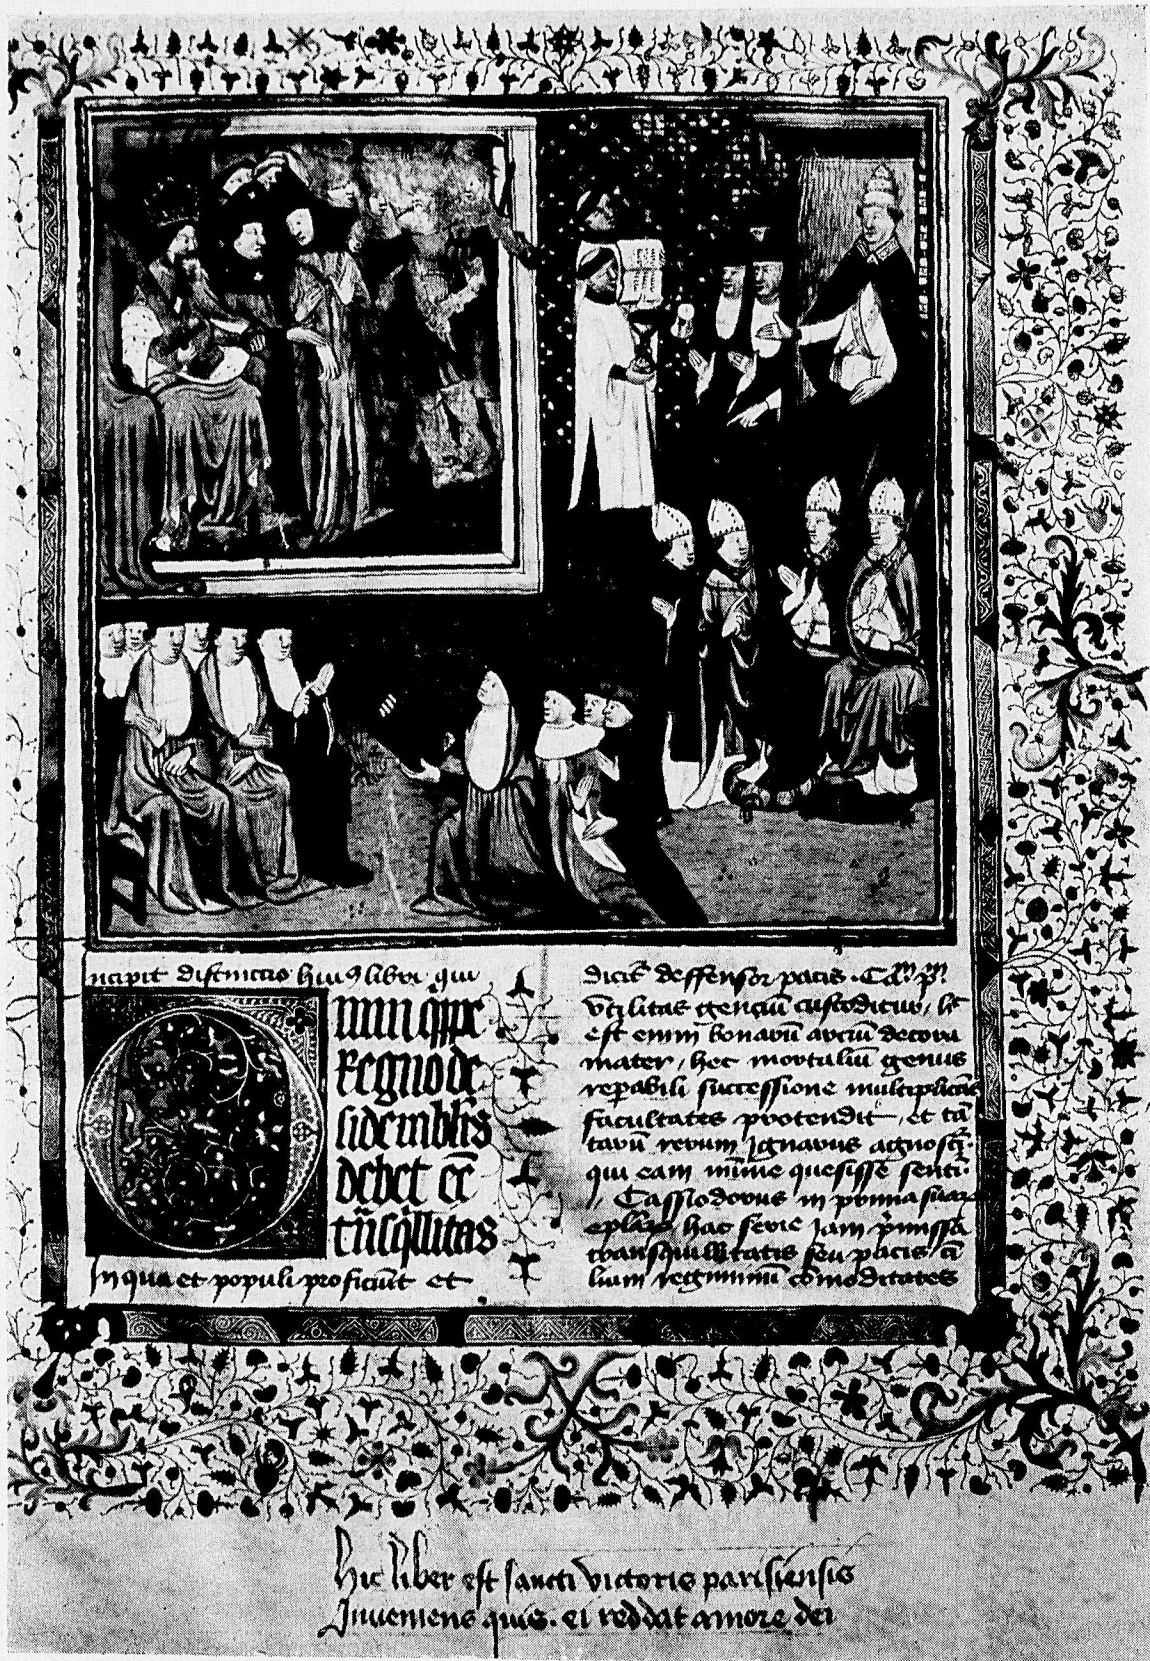 Incipit distinctio huiꝰ libri qui
Omni q̄ppe
Regno de
sideꝛabilis
debet eē
trāsq̄llitas
In qua et populi proficiūt et
dicit̄ deffensor pacis . Ca̅m̅ p̅m̅
vtilitas genciū custoditur / h̄
est enim bonarū arciū decora
mater / hec mortaliū genus
reparabili successione multiplicās
facultates protendit , et tā
tarū rerum ignarus agnoscit̄ .
qui eam mīme quesisse senti .
Cassiodorus in prima suarū
eplāꝝ hac serie iam p̄missa
transquillitatis seu pacis ci
lium regiminū cōmoditates
hic liber est sancti victoris parisiensis
Inueniens quis . ei reddat amore dei